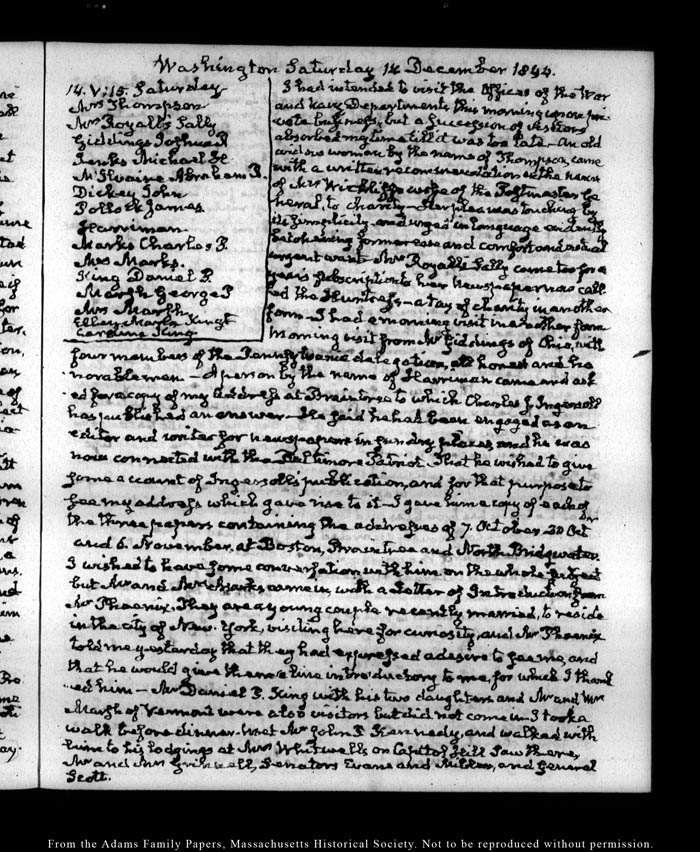 Washington Saturday 14 December 1844.
14. V:15. Saturday
Mrs Thompson
Mrs Royall & Sally
Giddings Joshua R
Jenks Michael H
McIlvaine Abraham R.
Dickey John
Pollock James
Harriman
Marks Charles P
Mrs Marks.
King Daniel P.
Marsh George P
Mrs Marsh
Ellen Maria King
Caroline King
I had intended to visit the Offices of the War
and Navy Departments this morning upon pri-
vate business, but a succession of visitors
absorbed my time till it was too late. An old
widow woman by the name of Thompson, came
with a written recommendation in the name
of Mrs Wickliffe wife of the Postmaster Ge
neral, to charity. Her plea was touching by
its simplicity and urged in language evidently
betokening former ease and comfort and actual
urgent want. Mrs Royall & Sally came too for a
years subscription to her Newspaper now call
ed the Huntress, a tax of charity in another
form. I had a morning visit in another form
morning visit from Mr Giddings of Ohio, with
four members of the Pennsylvania delegation, all honest and ho
norable men — A person by the name of Harriman came and ask
ed for a copy of my Address at Braintree to which Charles J. Ingersoll
has published an answer — He said he had been engaged as an
editor and writer for newspapers in sundry places, and he was
now connected with the Baltimore Patriot. That he wished to give
some account of Ingersoll's publication, and for that purpose to
see my address which gave rise to it. I gave him a copy of each of
the three papers containing the addresses of 7. October 30 Octr
and 6. November, at Boston, Braintree and North Bridgewater.
I wished to have some conversation with him on the whole subject
but Mr and Mrs Marks came in, with a Letter of Introduction from
Mr Phoenix. They are a young couple recently married, to reside
in the city of New-York, visiting here for curiosity, and Mr Phoenix
told me yesterday that they had expressed a desire to see me, and
that he would give them a line introductory to me, for which I thank
ed him — Mr Daniel P. King with his two daughters and Mr and Mrs
Marsh of Vermont were also visitors but did not come in. I took a
walk before dinner. Met Mr John P. Kennedy, and walked with
him to his lodgings at Mrs Whitwell's on Capitol Hill Saw there,
Mr and Mrs Grinnell, Senators Evans and Miller, and General
Scott.
From the Adams Family Papers, Massachusetts Historical Society. Not to be reproduced without permission.